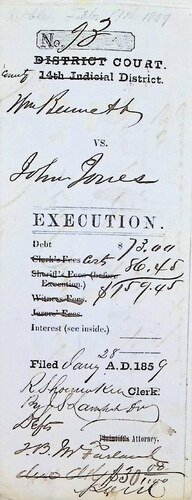 No. 93
DISTRICT COURT.
County 14th Judicial District.
Wm Bennett
VS.
John Jones
EXECUTION.
Debt $ 73.00
Clerk's Fees Cost 86.45
Sheriff's Fees (before Execution.) $159.45
Witness Fees.
Jurors' Fees.
Interest (see inside.)
Filed Jany 28 A.D. 1859
Clerk.
By
Defts
Plaintiff's Attorney.
McFarland
$50.00